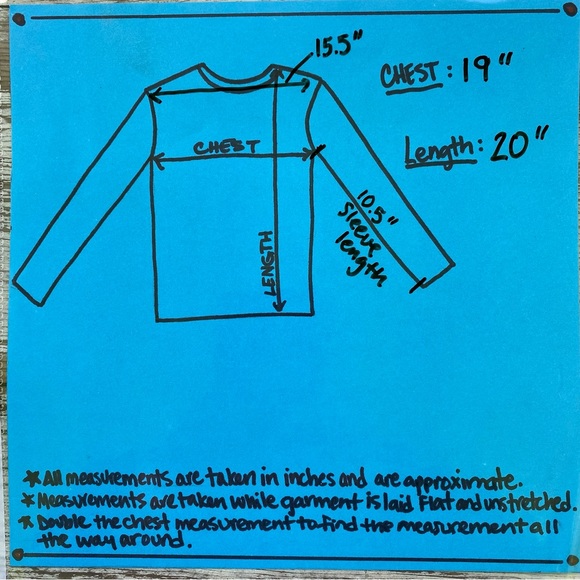 15.5"
CHEST: 19"
Length: 20"
CHEST
LENGTH
10.5"
Sleeve
length
*All measurements are taken in inches and are approximate.
*Measurements are taken while garment is laid flat and unstretched.
*Double the chest measurement to find the measurement all
the way around.